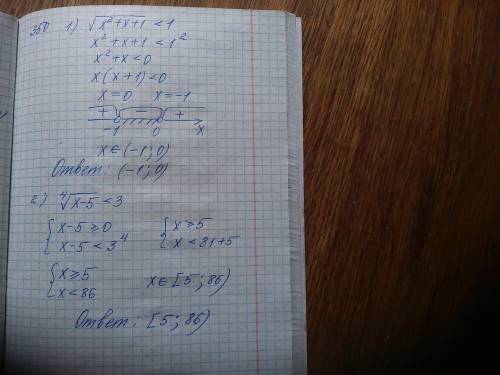 350 1) √x²+x+1 < 1
x²+x+1 < 1²
x²+x<0
x(x+1)<0
x=0 x=-1
+ - +
-1 0 x
x∈(-1;0)
Ответ: (-1;0)
2) ∜x-5 < 3
{x-5≥0 {x≥5
{x-5<3⁴ {x<81+5
{x≥5
{x<86 x∈[5;86)
Ответ: [5;86)